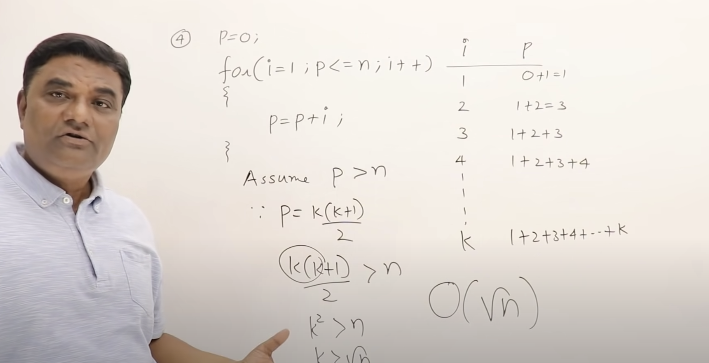 ④ P=0;
for(i=1; p<=n; i++)
{
p=p+i;
}
Assume p>n
∵ p= k(k+1)/2
k(k+1)/2 > n
k² > n
k > √n
i P
1 0+1=1
2 1+2=3
3 1+2+3
4 1+2+3+4
k 1+2+3+4+--+k
O(√n)